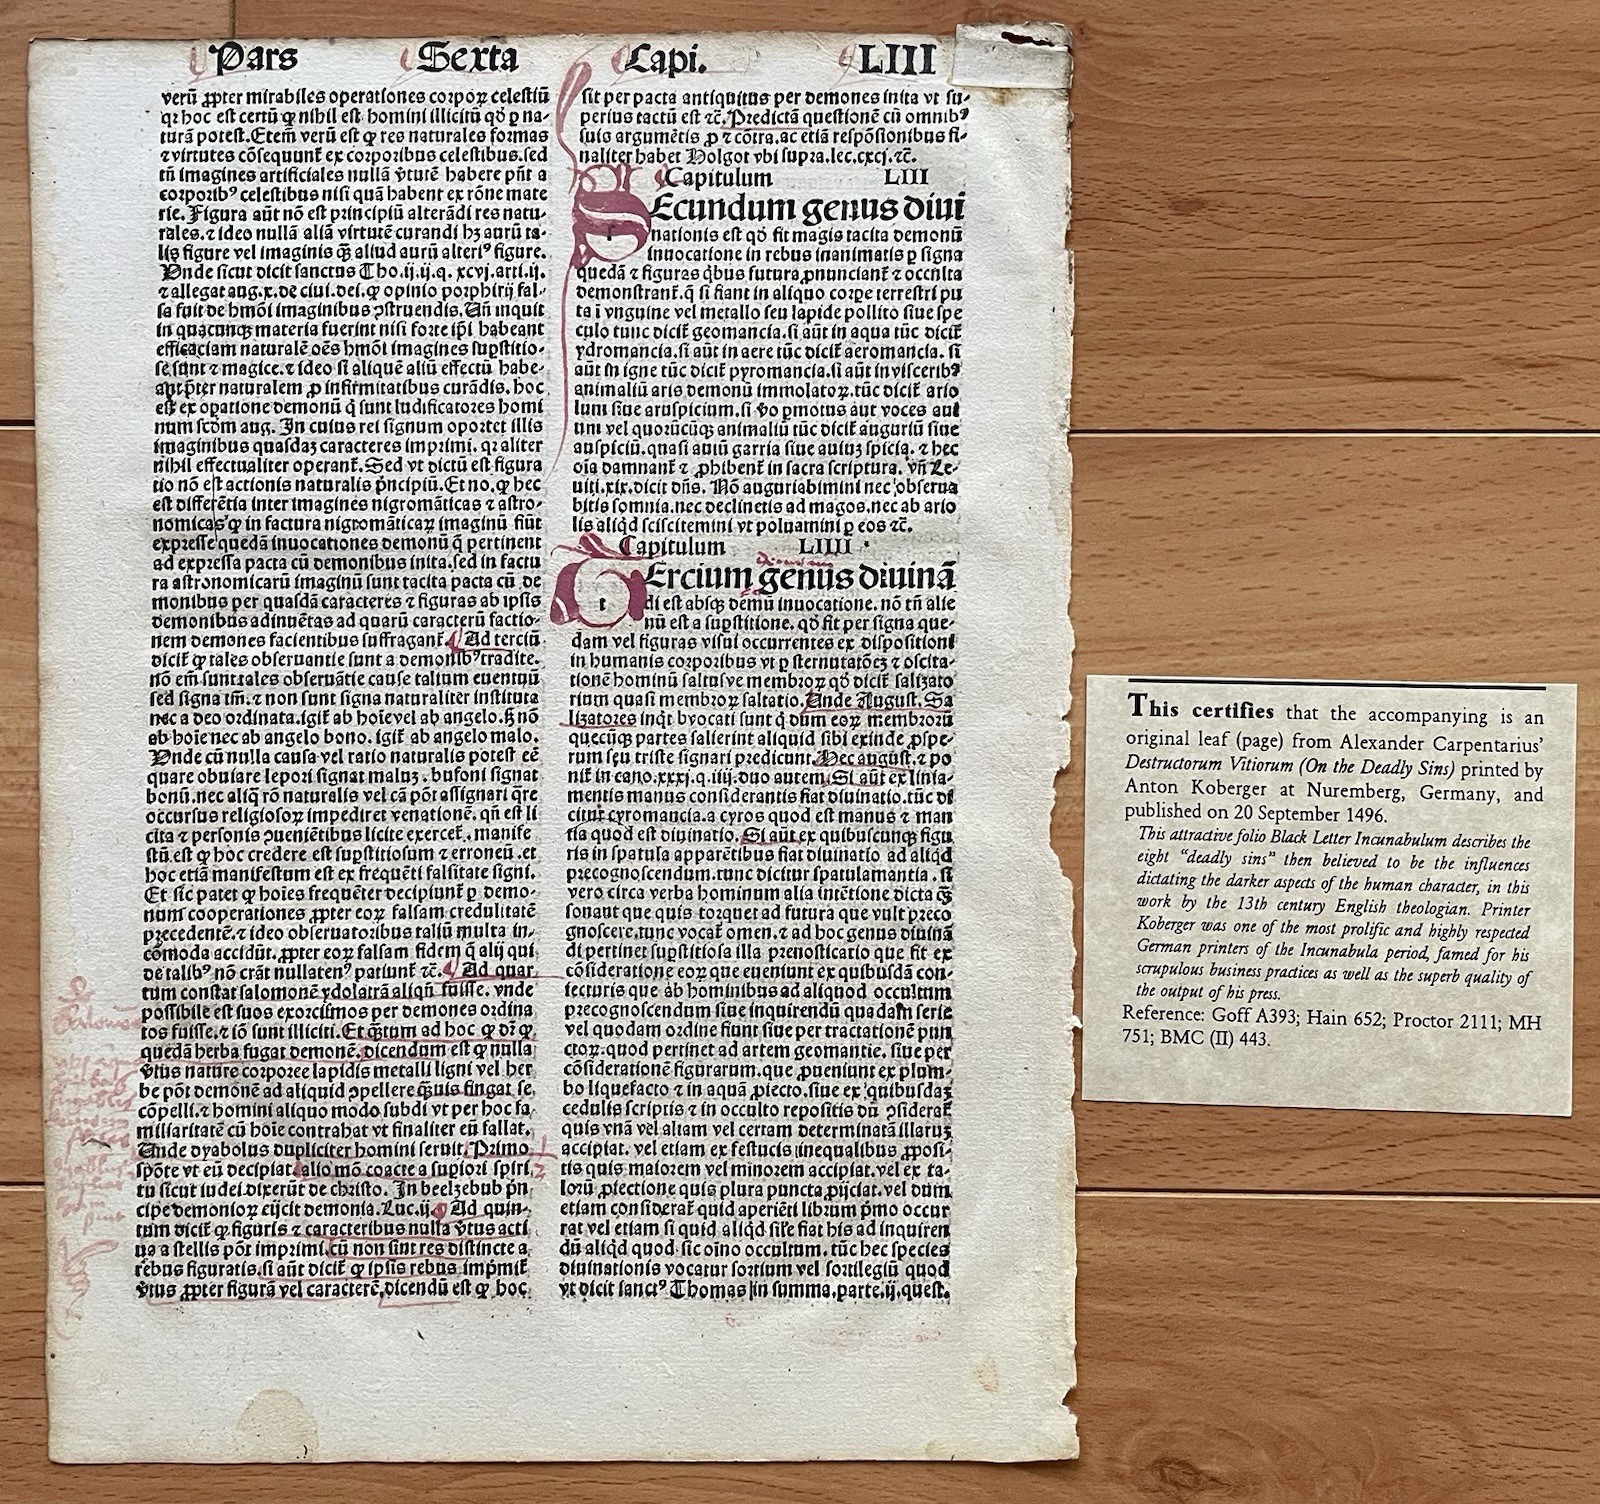 Pars Sexta Capi. LIII
verū ꝓpter mirabiles operationes corpoꝝ celestiū
qꝛ hoc est certū ꝙ nihil est homini illicitū qđ ꝑ na-
turā potest. Etem̄ verū est ꝙ res naturales formas
⁊ virtutes cōsequunt̄ ex corporibus celestibus. sed
tn̄ imagines artificiales nullā v̄tutē habere pn̄t a
corporibꝰ celestibus nisi quā habent ex rōne mate
rie. Figura aūt nō est principiū alterādi res natu-
rales. ⁊ ideo nullā aliā virtutē curandi hꝫ aurū ta-
lis figure vel imaginis q̄ꝫ aliud aurū alteriꝰ figure.
Vnde sicut dicit sanctus Tho. ij. ij. q. xcvj. arti. ij.
⁊ allegat aug. x. de ciui. dei. ꝙ opinio porphirij fal-
sa fuit de hm̄oi imaginibus ꝯstruendis. Un̄ inquit
in quacunqꝫ materia fuerint nisi forte ip̄i habeant
efficaciam naturalē oēs hm̄oi imagines suꝑstitio-
se sunt ⁊ magice. ⁊ ideo si aliquē aliū effectū habe-
ant p̄ter naturalem ꝓ infirmitatibus curādis. hoc
est ex oꝑatione demonū q̄ sunt ludificatores homi
num scđm aug. In cuius rei signum oportet illis
imaginibus quasdaꝫ caracteres imprimi. qꝛ aliter
nihil effectualiter operant̄. Sed vt dictū est figura
tio nō est actionis naturalis p̄ncipiū. Et no. ꝙ hec
est differētia inter imagines nigromāticas ⁊ astro-
nomicas ꝙ in factura nigromāticaꝝ imaginū fiūt
expresse quedā inuocationes demonū q̄ pertinent
ad expressa pacta cū demonibus inita. sed in factu
ra astronomicarū imaginū sunt tacita pacta cū de
monibus per quasdā caracteres ⁊ figuras ab ipsis
demonibus adinuētas ad quarū caracterū factio-
nem demones facientibus suffragant̄. Ad terciū
dicit̄ ꝙ tales obseruantie sunt a demonibꝰ tradite.
nō em̄ sunt tales obseruātie cause talium euentuū
sed signa tm̄. ⁊ non sunt signa naturaliter instituta
nec a deo ordinata. igit̄ ab hoīe vel ab angelo. sꝫ nō
ab hoīe nec ab angelo bono. igit̄ ab angelo malo.
Vnde cū nulla causa vel ratio naturalis potest eē
quare obuiare lepori signat maluꝫ. bufoni signat
bonū. nec aliq̄ rō naturalis vel cā pōt assignari q̄re
occursus religiosoꝝ impediret venationē. qn̄ est li
cita ⁊ personis ꝯueniētibus licite exercet̄. manife
stū est ꝙ hoc credere est suꝑstitiosum ⁊ erroneū. et
hoc etiā manifestum est ex frequēti falsitate signi.
Et sic patet ꝙ hoīes frequēter decipiunt̄ ꝑ demo-
num cooperationes ꝓpter eoꝝ falsam credulitatē
precedentē. ⁊ ideo obseruatoribus taliū multa in-
cōmoda accidūt. ꝓpter eoꝝ falsam fidem q̄ alij qui
de talibꝰ nō curāt nullatenꝰ patiunt̄ ⁊c̄. Ad quar
tum constat salomonē ydolatrā aliqn̄ fuisse. vnde
possibile est suos exorcismos per demones ordina
tos fuisse. ⁊ iō sunt illiciti. Et q̄ntum ad hoc ꝙ dr̄ ꝙ
quedā herba fugat demonē. dicendum est ꝙ nulla
v̄tus nature corporee lapidis metalli ligni vel her
be pōt demonē ad aliquid ꝯpellere q̄ꝫuis fingat se
cōpelli. ⁊ homini aliquo modo subdi vt per hoc fa
miliaritatē cū hoīe contrahat vt finaliter eū fallat.
Unde dyabolus dupliciter homini seruit. Primo
spōte vt eū decipiat. alio mō coacte a suꝑiori spiri
tu sicut iudei dixerūt de christo. In beelzebub p̄n
cipe demonioꝝ eijcit demonia. Luc. ij. Ad quin-
tum dicit̄ ꝙ figuris ⁊ caracteribus nulla v̄tus acti
ua a stellis pōt imprimi. cū non sint res distincte a
rebus figuratis. si aūt dicit̄ ꝙ ipsis rebus imp̄mit̄
v̄tus ꝓpter figurā vel caracterē. dicendū est ꝙ hoc
sit per pacta antiquitus per demones inita vt su-
perius tactū est ⁊c̄. Predictā questionē cū omnibꝰ
suis argumētis ꝓ ⁊ cōtra. ac etiā respōsionibus fi-
naliter habet Holgot vbi supra. lec. cxcj. ⁊c̄.
Capitulum LIII
SEcundum genus diui
nationis est qđ fit magis tacita demonū
inuocatione in rebus inanimatis ꝑ signa
quedā ⁊ figuras qͥbus futura ꝓnunciant̄ ⁊ occulta
demonstrant̄. q̄ si fiant in aliquo corꝑe terrestri pu
ta ī vnguine vel metallo seu lapide pollito siue spe
culo tunc dicit̄ geomancia. si aūt in aqua tūc dicit̄
ydromancia. si aūt in aere tūc dicit̄ aeromancia. si
aūt in igne tūc dicit̄ pyromancia. si aūt in visceribꝰ
animaliū aris demonū immolatoꝝ. tūc dicit̄ ario
lum siue aruspicium. si v̊o ꝑmotus aut voces aui
um vel quorūcūqꝫ animaliū tūc dicit̄ auguriū siue
auspiciū. quasi auiū garria siue auiuꝫ spicia. ⁊ hec
oīa damnant̄ ⁊ ꝓhibent̄ in sacra scriptura. vn̄ Le-
uiti. xix. dicit dn̄s. Nō auguriabimini nec obserua
bitis somnia. nec declinetis ad magos. nec ab ario
lis aliqͥd sciscitemini vt poluamini ꝑ eos ⁊c̄.
Capitulum LIIII
TErcium genus diuinā
di est absqꝫ demū inuocatione. nō tn̄ alie
nū est a suꝑstitione. qđ fit per signa que-
dam vel figuras visui occurrentes ex dispositioni
in humanis corporibus vt ꝑ sternutatōeꝫ ⁊ oscita-
tionē hominū saltusve membroꝝ qđ dicit̄ salizato
rium quasi membroꝝ saltatio. Unde August. Sa
lizatores inqͥt hyvocati sunt q̄ dum eoꝝ membrorū
quecūqꝫ partes salierint aliquid sibi exinde ꝓspe-
rum seu triste signari predicunt. Hec august. ⁊ po
nit̄ in cano. xxxj. q. iiij. duo autem. Si aūt ex linia-
mentis manus considerantis fiat diuinatio. tūc di
citur cyromancia. a cyros quod est manus ⁊ man
tia quod est diuinatio. Si aūt ex quibuscunqꝫ figu
ris in spatula apparētibus fiat diuinatio ad aliqͥd
precognoscendum. tunc dicitur spatulamantia. si
vero circa verba hominum alia intētione dicta q̄ꝫ
sonant que quis torquet ad futura que vult preco
gnoscere. tunc vocat̄ omen. ⁊ ad hoc genus diuinā
di pertinet suꝑstitiosa illa prenosticatio que fit ex
cōsideratione eoꝝ que eueniunt ex quibusdā con-
iecturis que ab hominibus ad aliquod occultum
precognoscendum siue inquirendū quadam serie
vel quodam ordine fiunt siue per tracationē pun
ctoꝝ. quod pertinet ad artem geomantie. siue per
cōsiderationē figurarum. que ꝓueniunt ex plum-
bo liquefacto ⁊ in aquā ꝓiecto. siue ex quibusdaꝫ
cedulis scriptis ⁊ in occulto repositis dū ꝯsiderat̄
quis vnā vel aliam vel certam determinatā illaruꝫ
accipiat. vel etiam ex festucis inequalibus ꝓposi-
tis quis maiorem vel minorem accipiat. vel ex ta-
lorū ꝓiectione quis plura puncta ꝓijciat. vel dum
etiam considerat̄ quid aperiēti librum p̄mo occur
rat vel etiam si quid aliqͥd sil̄e fiat his ad inquiren
dū aliqͥd quod sic oīno occultum. tūc hec species
diuinationis vocatur sortium vel sortilegiū quod
vt dicit sanctꝰ Thomas in summa. parte. ij. quest.
This certifies that the accompanying is an
original leaf (page) from Alexander Carpentarius'
Destructorum Vitiorum (On the Deadly Sins) printed by
Anton Koberger at Nuremberg, Germany, and
published on 20 September 1496.
This attractive folio Black Letter Incunabulum describes the
eight "deadly sins" then believed to be the influences
dictating the darker aspects of the human character, in this
work by the 13th century English theologian. Printer
Koberger was one of the most prolific and highly respected
German printers of the Incunabula period, famed for his
scrupulous business practices as well as the superb quality of
the output of his press.
Reference: Goff A393; Hain 652; Proctor 2111; MH
751; BMC (II) 443.